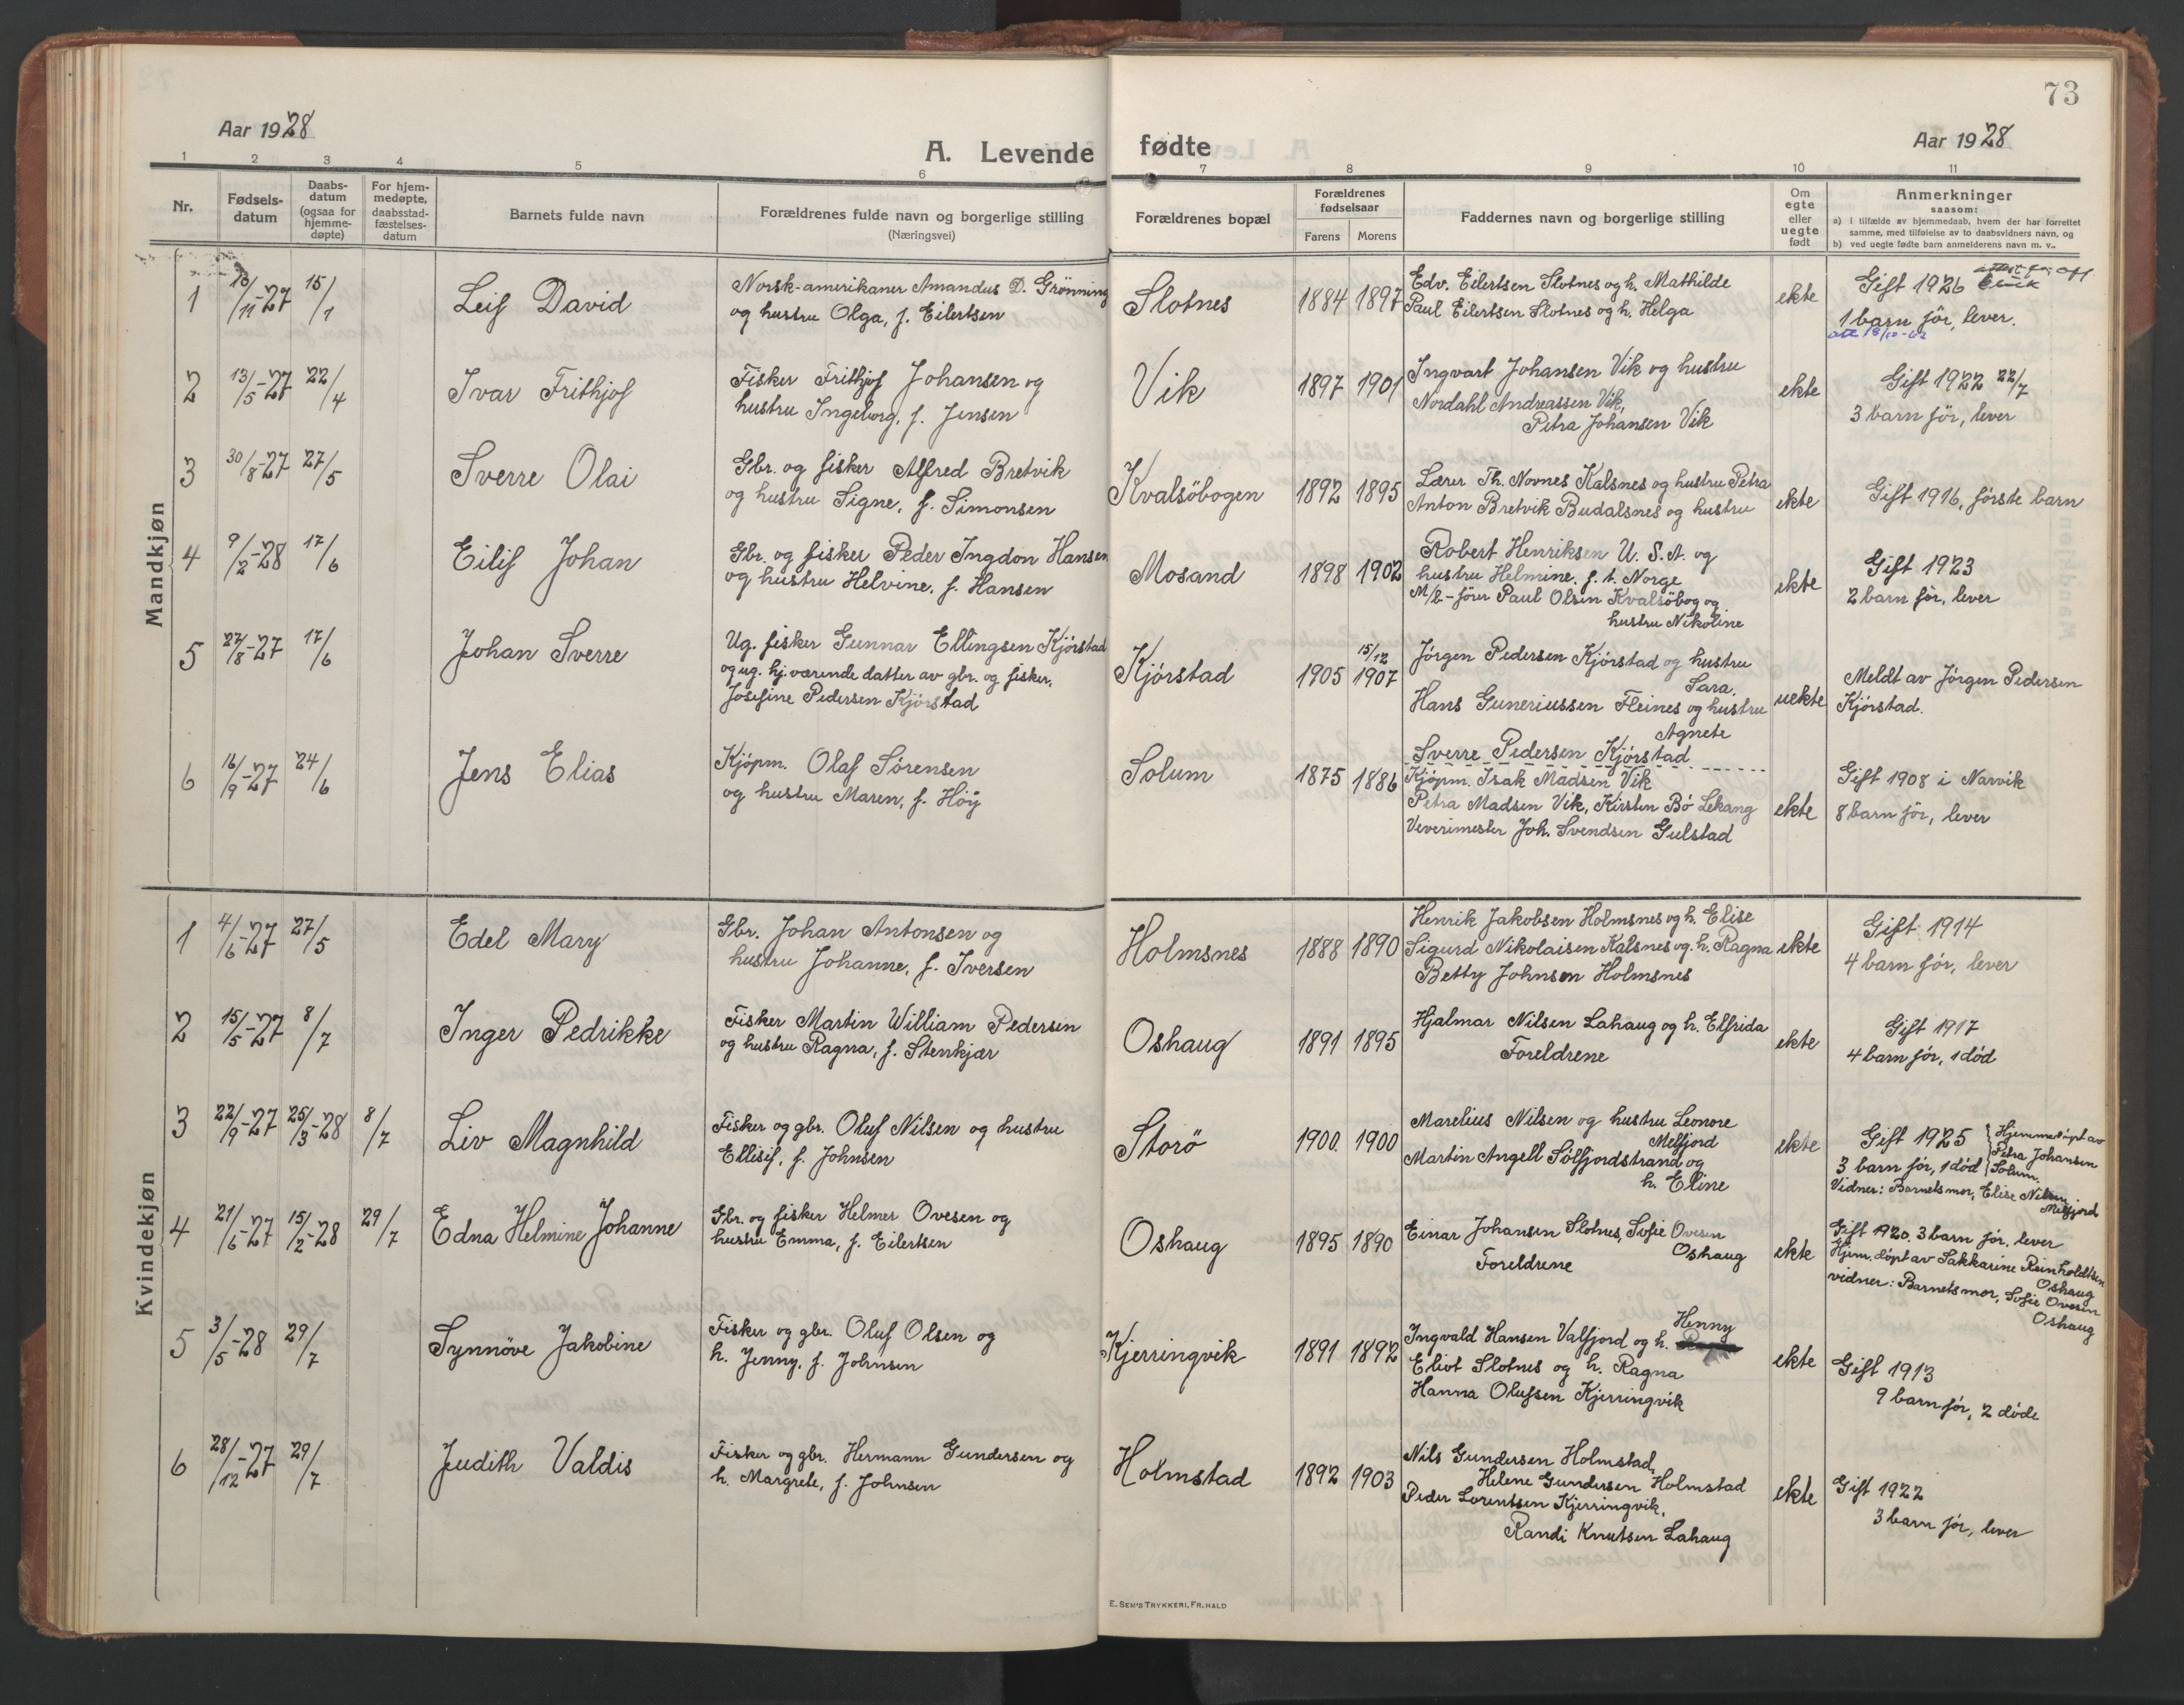 73
Aar 1928
A. Levende fødte
Aar 1928
1 2 3 4 5 6 7 8 9 10 11
Nr.
Fødsels-
datum
Daabs-
datum
(ogsaa for
hjemme-
døpte)
For hjem-
medøpte,
daabsstad-
fæstelses-
datum
Barnets fulde navn
Forældrenes fulde navn og borgerlige stilling
(Næringsvei)
Forældrenes bopæl
Forældrenes
fødselsaar
Farens Morens
Faddernes navn og borgerlige stilling
Om
egte
eller
uegte
født
Anmerkninger
saasom:
a) i tilfælde av hjemmedaab, hvem der har forrettet
samme, med tilføielse av to daabsvidners navn, og
b) ved uegte fødte barn anmelderens navn m. v..
Mandkjøn
1
13/11-27
15/1
Leif David
Norsk-amerikaner Amandus D. Grønning
og hustru Olga, f. Eilertsen
Slotnes
1884 1897
Edv. Eilertsen Slotnes og h. Mathilde
Paul Eilertsen Slotnes og h. Helga
ekte
Gift 1926
1 barn før, lever.
2
13/5-27
22/4
Ivar Frithjof
Fisker Frithjof Johansen og
hustru Ingeborg, f. Jensen
Vik
1897 1901
Ingvart Johansen Vik og hustru
Nordahl Andreassen Vik,
Petra Johansen Vik
ekte
Gift 1922 22/7
3 barn før, lever
3
30/8-27
27/5
Sverre Olai
Gbr. og fisker Alfred Bretvik
og hustru Signe, f. Simonsen
Kvalsöbogen
1892 1895
Lærer Th. Novnes Kalsnes og hustru Petra
Anton Bretvik Budalsnes og hustru
ekte
Gift 1916, første barn
4
9/2-28
17/6
Eilif Johan
Gbr. og fisker Peder Ingdon Hansen
og hustru Helvine, f. Hansen
Mosand
1898 1902
Robert Henriksen U. S. A. og
hustru Helmine. f. t. Norge
M/b-fører Paul Olsen Kvalsöbog og
hustru Nikoline
ekte
Gift 1923
2 barn før, lever
5
27/8-27
17/6
Johan Sverre
Ug. fisker Gunnar Ellingsen Kjørstad
og ug. hj. værende datter av gbr. og fisker,
Josefine Pedersen Kjørstad
Kjørstad
1905 15/12 1907
Jørgen Pedersen Kjørstad og hustru
Sara.
Hans Guneriussen Fleines og hustru
Agnete
Sverre Pedersen Kjørstad
uekte
Meldt av Jørgen Pedersen
Kjørstad.
6
16/9-27
24/6
Jens Elias
Kjøpm. Olaf Sørensen
og hustru Maren, f. Høy
Solum
1875 1886
Kjøpm. Isak Madsen Vik
Petra Madsen Vik, Kirsten Bö Lekang
Veverimester Joh. Svendsen Gulstad
ekte
Gift 1908 i Narvik
8 barn før, lever
Kvindekjøn
1
4/6-27
27/5
Edel Mary
Gbr. Johan Antonsen og
hustru Johanne, f. Iversen
Holmsnes
1888 1890
Henrik Jakobsen Holmsnes og h. Elise
Sigurd Nikolaisen Kalsnes og. h. Ragna
Betty Johnsen Holmsnes
ekte
Gift 1914
4 barn før, lever
2
15/5-27
8/7
Inger Pedrikke
Fisker Martin William Pedersen
og hustru Ragna, f. Stenkjær
Oshaug
1891 1895
Hjalmar Nilsen Lahaug og h. Elfrida
Foreldrene
ekte
Gift 1917
4 barn før, 1 død
3
22/9-27
25/3-28
8/7
Liv Magnhild
Fisker og gbr. Oluf Nilsen og hustru
Ellisif, f. Johnsen
Storö
1900. 1900
Marelius Nilsen og hustru Leonore
Melfjord
Martin Angell Sölfjordstrand og
h. Eline
ekte
Gift 1925
3 barn før, 1 død
Hjemmedøpt av
Petra Johansen
Solum.
Vidner: Barnets mor, Elise Nilsen
Melfjord
4
21/6-27
15/2-28
29/7
Edna Helmine Johanne
Gbr. og fisker Helmer Ovesen og
hustru Emma, f. Eilertsen
Oshaug
1895 1890
Einar Johansen Slotnes, Sofie Ovesen
Oshaug
Foreldrene
ekte
Gift 1920. 3 barn før, lever
Hjem. døpt av Sakkarine Reinholdtsen
Oshaug
vidner: Barnets mor, Sofie Ovesen
Oshaug
5
3/5-28
29/7
Synnöve Jakobine
Fisker og gbr. Oluf Olsen og
h. Jenny, f. Johnsen
Kjerringvik
1891 1892
Henny
Ingvald Hansen Valfjord og h.
Eliot Slotnes og h. Ragna
Hanna Olufsen Kjerringvik
ekte
Gift 1913
9 barn før, 2 døde
6
28/12-27
29/7
Judith Valdis
Fisker og gbr. Hermann Gundersen og
h. Margrete, f. Johnsen
Holmstad
1892 1903
Nils Gundersen Holmstad,
Helene Gundersen Holmstad
Peder Lorentsen Kjerringvik,
Randi Knutsen Lahaug
ekte
Gift 1922
3 barn før, lever
E. SEM'S TRYKKERI, FR.HALD